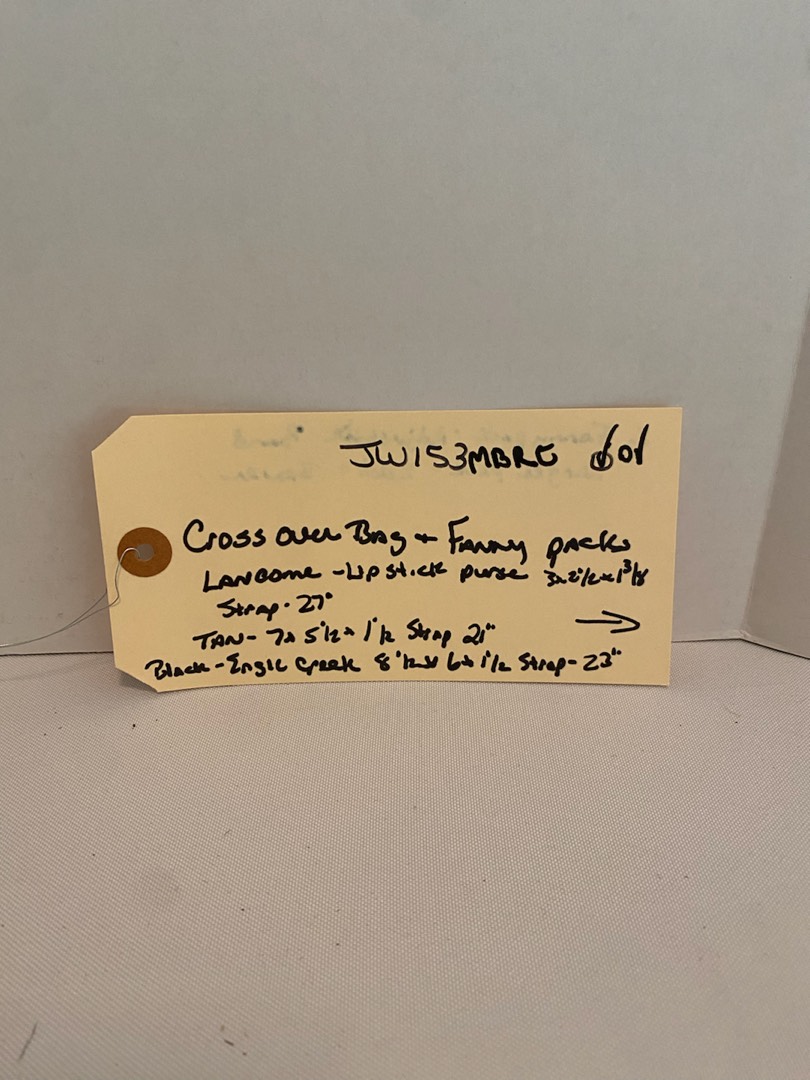 JW153MBRC 601
Cross over Bag + Fanny packs
LANCOME - Lipstick purse 3x2 1/2 x 1 3/8
Strap - 27"
TAN - 7x 5 1/2 x 1 1/2 Strap 21"
→
Black - Eagle Creek 8 1/2 x 6 x 1 1/2 Strap - 23"